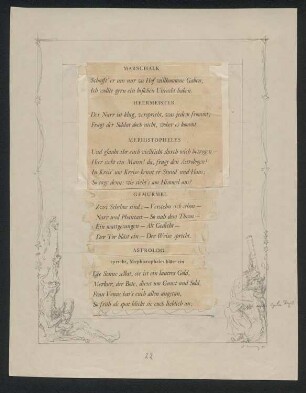 MARSCHALK.
Schafft er uns nur zu Hof willkommne Gaben,
Ich wollte gern ein bißchen Unrecht haben.
HEERMEISTER.
Der Narr ist klug, verspricht, was jedem frommt;
Fragt der Soldat doch nicht, woher es kommt.
MEPHISTOPHELES.
Und glaubt ihr euch vielleicht durch mich betrogen;
Hier steht ein Mann! da, fragt den Astrologen!
In Kreis' um Kreise kennt er Stund' und Haus;
So sage denn: wie sieht's am Himmel aus?
GEMURMEL.
Zwei Schelme sind's — Verstehn sich schon —
Narr und Phantast — So nah dem Thron —
Ein mattgesungen — Alt Gedicht —
Der Tor bläst ein — Der Weise spricht.
ASTROLOG
spricht, Mephistopheles bläst ein.
Die Sonne selbst, sie ist ein lautres Gold,
Merkur, der Bote, dient um Gunst und Sold,
Frau Venus hat's euch allen angetan,
So früh als spat blickt sie euch lieblich an;
22